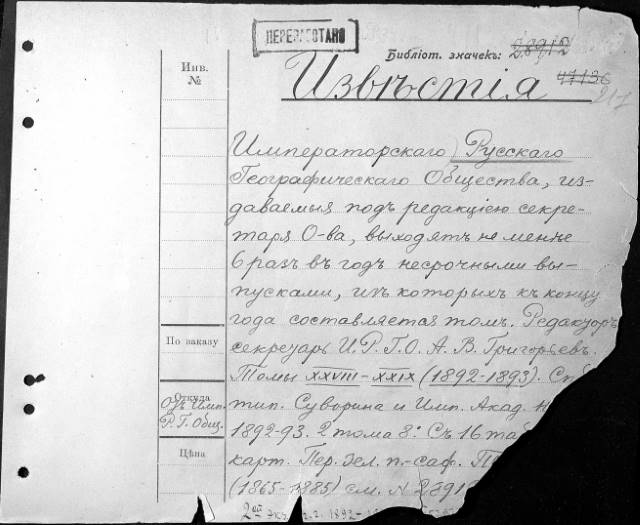 ПЕРЕРАБОТАНО
Библіот. значекъ: 28912
47136
217
Инв.
№
Извѣстія
Императорскаго Русскаго
Географическаго Общества, из-
даваемыя подъ редакціею секре-
таря О-ва, выходятъ не менѣе
6 разъ въ годъ несрочными вы-
пусками, изъ которыхъ къ концу
года составляется томъ. Редакторъ
секретарь И. Р. Г. О. А. В. Григорьевъ.
По заказу
Томы XXVIII–XXIX (1892-1893). Сп
Откуда
Отъ Имп.
Р. Г. Общ.
тип. Суворина и Имп. Акад. Н
1892-93. 2 тома 8° Съ 16 таб
Цѣна
карт. Пер. зел. п.-саф.
(1865-1885) см. №
2ой экз. 1892-